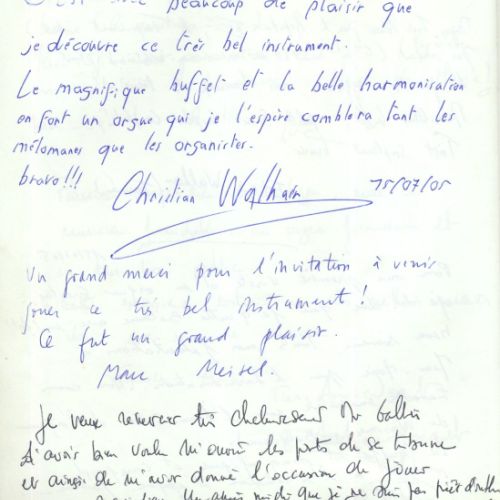 C'est avec beaucoup de plaisir que
je découvre ce très bel instrument.
Le magnifique buffet et la belle harmonisation
en font un orgue qui je l'espère comblera tant les
mélomanes que les organistes.
bravo!!!
Christian 15/07/05
Un grand merci pour l'invitation à venir
jouer ce très bel instrument !
Ce fut un grand plaisir.
Marc Meisel.
Je veux remercier très chaleureusement Mr
d'avoir bien voulu m'ouvrir les portes de sa tribune
et ainsi de m'avoir donné l'occasion de jouer
que je ne suis pas prêt d'oublier